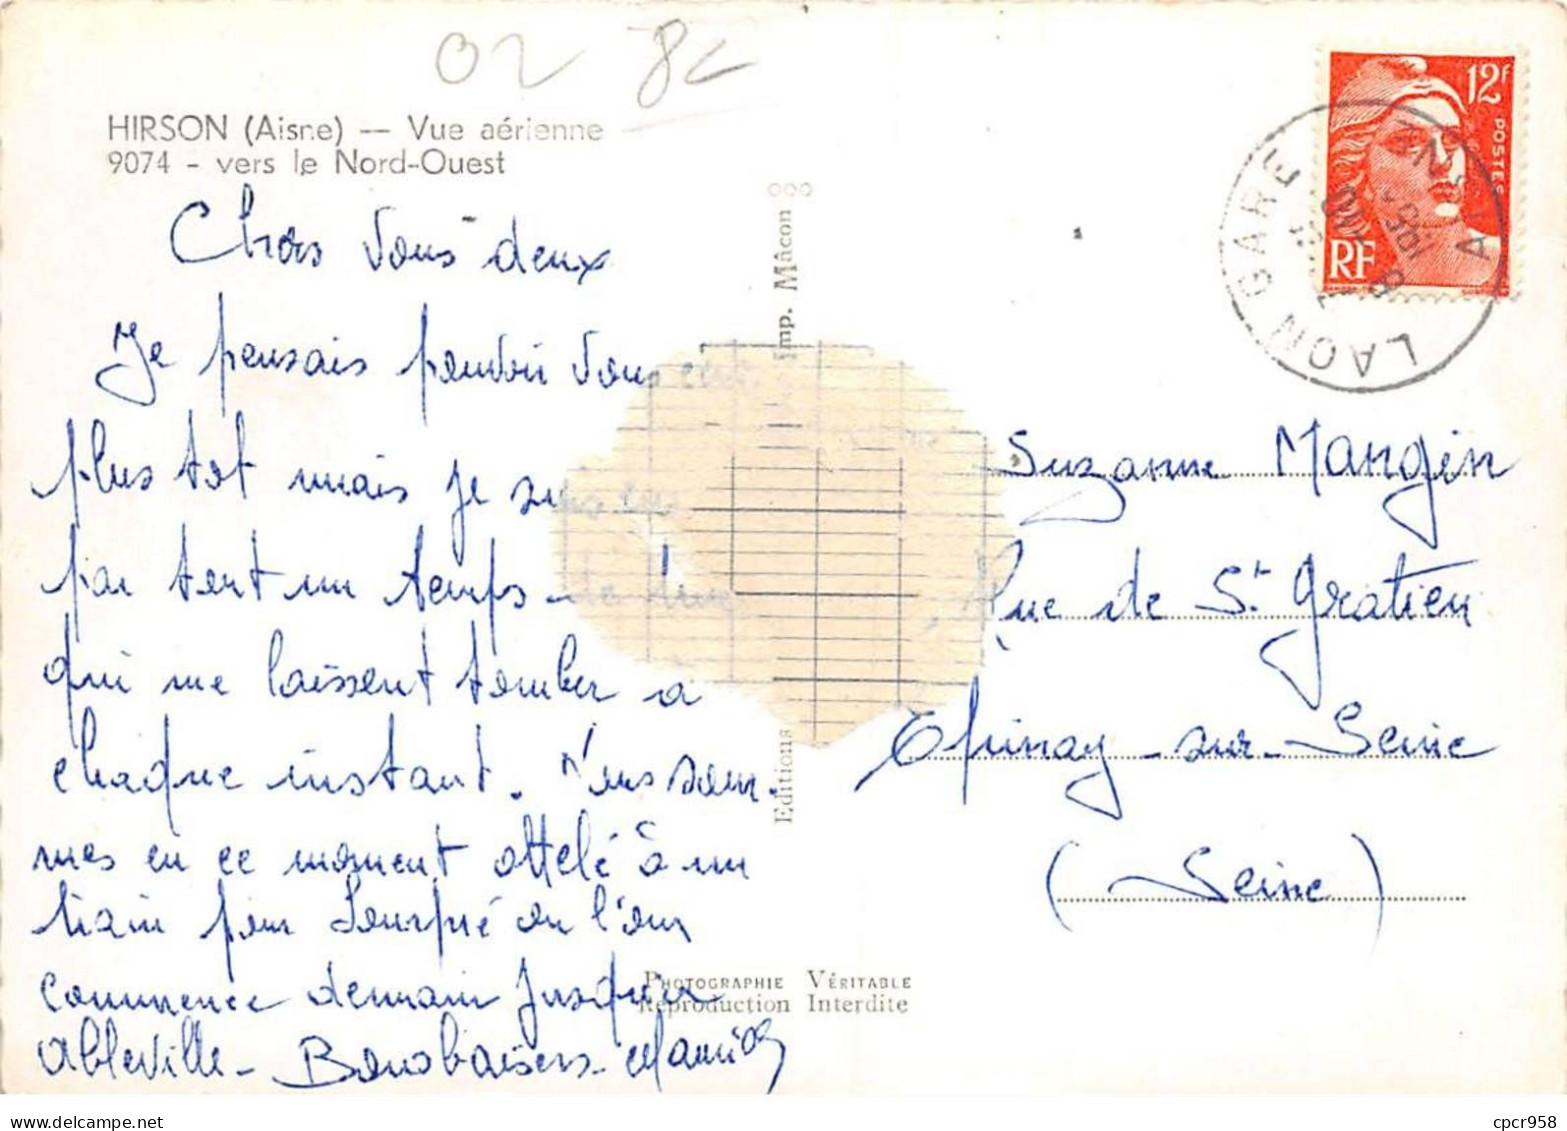 02 8c
HIRSON (Aisne) — Vue aérienne
9074 - vers le Nord-Ouest
Chers vous deux
Je pensais pouvoir vous
plus tot mais je suis
par tout un temps de
qui me laissent tomber à
chaque instant. Nous som-
mes en ce moment attelé à un
train pour Sourpré ou l'on
commence demain jusqu'a
Abbeville - Bons baisers -
Editions
Imp. Mâcon
PHOTOGRAPHIE VÉRITABLE
Reproduction Interdite
12F
POSTES
RF
LAON GARE
AISNE
Suzanne Mangin
Rue de St Gratien
Epinay-sur-Seine
(Seine)
cpcr958